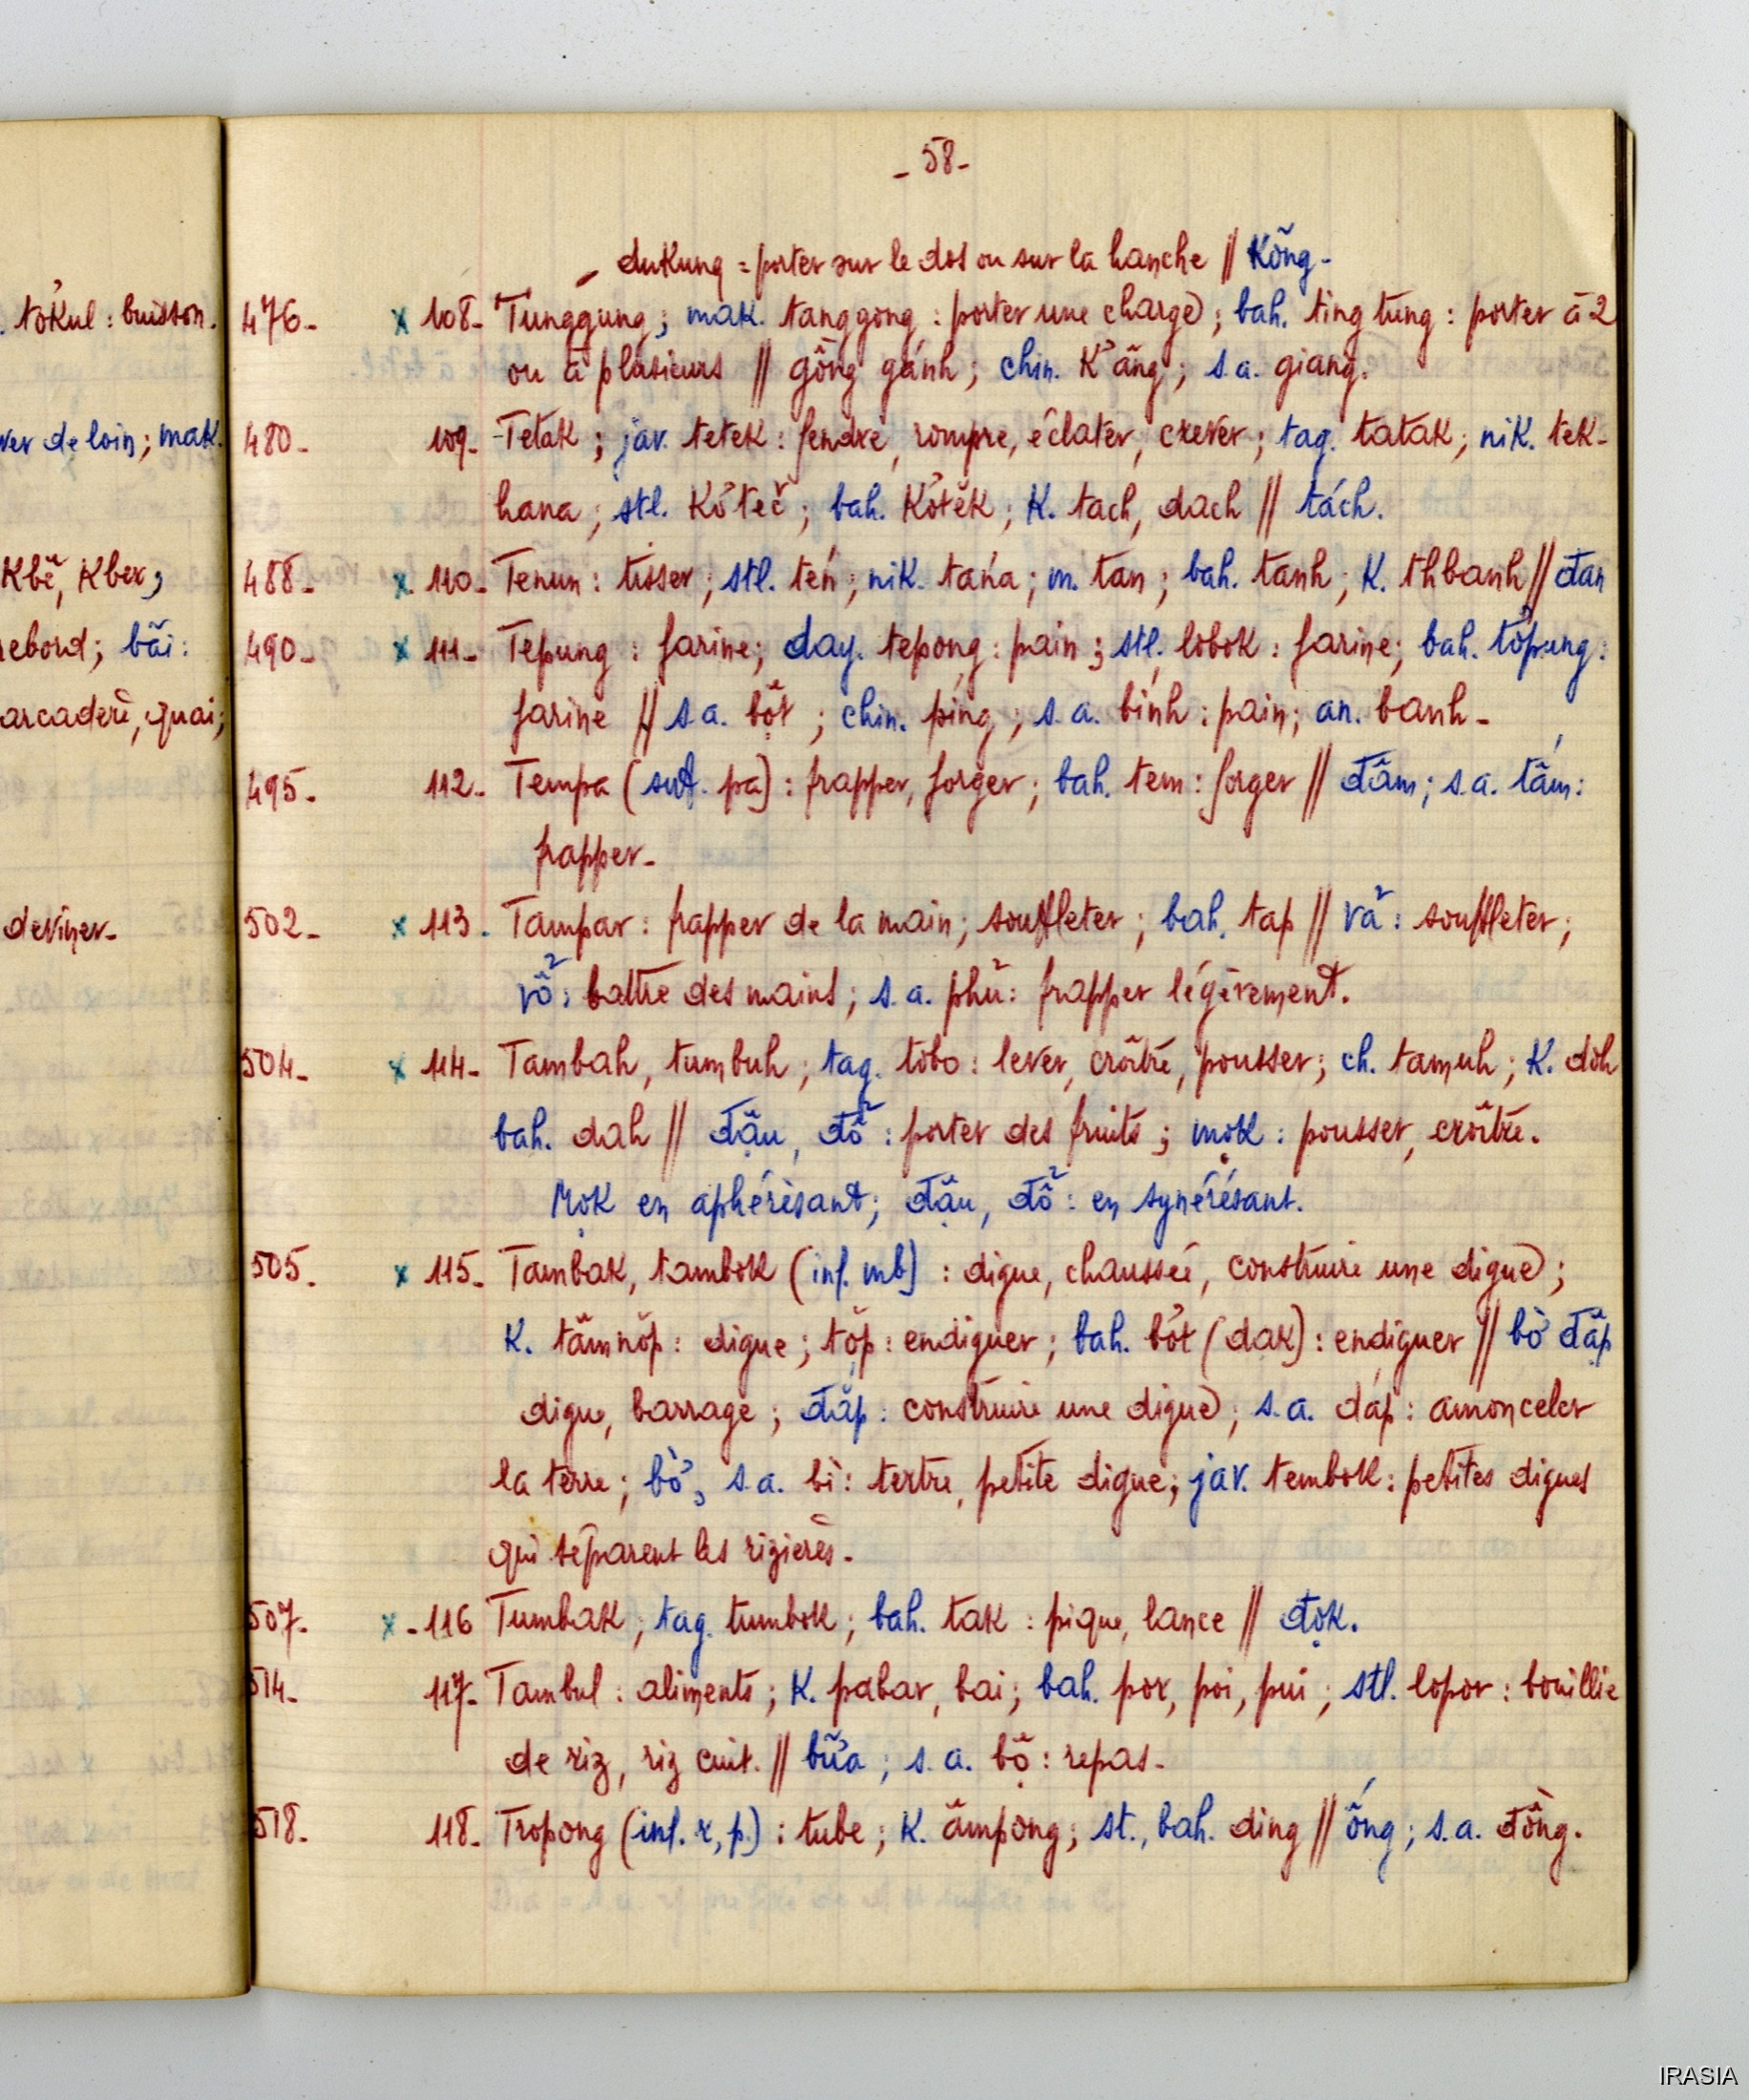 - 58 -
dukung = porter sur le dos ou sur la hanche // Kõng -
476 - x 108 - Tunggung ; mak. tanggong : porter une charge ; bah. ting tung : porter à 2
ou à plusieurs // gồng gánh ; chin. K'ăng ; s.a. giang.
480 - 109 - Tetak ; jav. tetek : fendre, rompre, éclater, crever ; tag. tatak ; nik. tek-
hana ; stl. Kơteč ; bah. Kơtĕk ; K. tach, dach // tách.
488 - x 110 - Tenun : tisser ; stl. tén ; nik. tańa ; m. tan ; bah. tanh ; K. thbanh // đan
490 - x 111 - Tepung : farine ; day. tepong : pain ; stl. lobok : farine ; bah. tơpung :
farine // s.a. bột ; chin. píng ; s.a. bính : pain ; an. banh -
495 - 112 - Tempa (suf. pa) : frapper, forger ; bah. tem : forger // đâm ; s.a. tấm :
frapper -
502 - x 113 - Tampar : frapper de la main ; souffleter ; bah. tap // vả : souffleter ;
vỗ : battre des mains ; s.a. phủ : frapper légèrement.
504 - x 114 - Tambah, tumbuh ; tag. tobo : lever, croître, pousser ; ch. tamuh ; K. dŏh
bah. dah // đậu, đổ : porter des fruits ; mọk : pousser, croître.
Mọk en aphérèsant ; đậu, đổ : en synérésant.
505 - x 115 - Tambak, tambok (inf. mb) : digue, chaussée, construire une digue ;
K. tămnŏp : digue ; tŏp : endiguer ; bah. bơt (dak) : endiguer // bờ đập
digue, barrage ; đắp : construire une digue ; s.a. dáp : amonceler
la terre ; bờ, s.a. bì : tertre, petite digue ; jav. tembok : petites digues
qui séparent les rizières -
507 - x - 116 Tumbak ; tag. tumbok ; bah. tak : pique, lance // đọk.
514 - 117 - Tambul : aliments ; K. pabar, bai ; bah. por, poi, pui ; stl. lopor : bouillie
de riz, riz cuit. // bữa ; s.a. bộ : repas -
518 - 118 - Tropong (inf. r, p.) : tube ; K. âmpong ; st., bah. ding // ống ; s.a. đồng.
. tơkul : buisson.
ver de loin ; mak.
Kbĕ, Kber,
rebord ; bãi :
arcadère, quai ;
deviner -
IRASIA